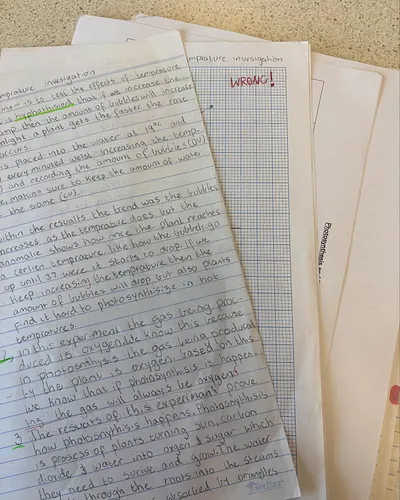 mprature invesigation
ment is to test the effects of temprature
is hypothosised that if we increase the
amp then the amount of bubbles will increase
nlight a plant gets the faster the rate
occurs.
s placed into the water at 19°c and
every minute whilst increasing the temp-
) and recording the amount of bubbles (DV)
e, making sure to keep the amount of water
the same (CV).
within the results the trend was the bubbles
increases as the temprature does but the
anomalie shows how once the plant reaches
a certien temprature like how the bubbles go
up until 37 were it starts to drop. If we
keep increasing the temprature then the
amount of bubbles will drop but also plants
find it hard to photosynthisise in hot
tempratures.
In this experiment the gas being prod-
duced is oxygen. We know this because
in photosinthysis the gas being produced
by the plant is oxygen. based on this
we know that if photosynthisis is happen-
ing the gas will always be oxygen
3 The results of this experimant prove
how photosynthisis happens. Photosynthisis
is prosess of plants turning sun, carbon
dioxide & water into oxgen & sugar which
they need to survive and grow. The water
through the roots into the steams
absorbed by
mprature invesigation
WRONG!
Photosynthesis